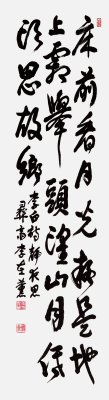 床前看月光疑是地
上霜舉頭望山月低
頭思故鄉
李白詩靜夜思
高李在